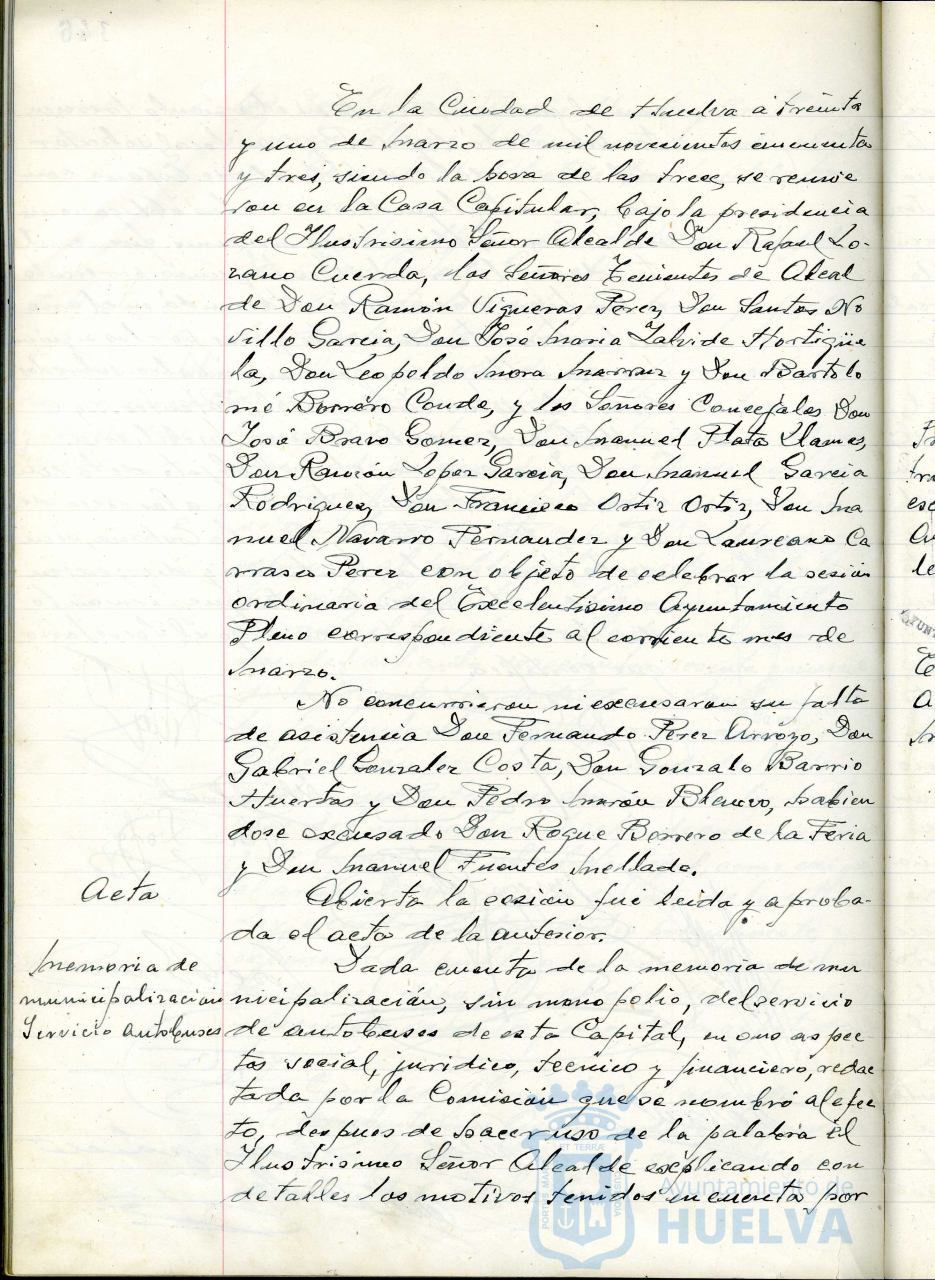 En la Ciudad de Huelva a treinta
y uno de Marzo de mil novecientos cincuenta
y tres, siendo la hora de las trece, se reunie
ron en la Casa Capitular, bajo la presidencia
del Ilustrisimo Señor Alcalde Don Rafael Lo-
zano Cuerda, los Señores Tenientes de Alcal
de Don Ramón Vigueras Perez, Don Santos No
villo Garcia, Don José Maria Zalvide Hortigüe
la, Don Leopoldo Mora Marruz y Don Bartolo
mé Borrero Conde, y los Señores Concejales Don
José Bravo Gomez, Don Manuel Plata Llamas,
Don Ramón Lopez Garcia, Don Manuel Garcia
Rodriguez, Don Francisco Ortiz Ortiz, Don Ma
nuel Navarro Fernandez y Don Laureano Ca
rrasco Perez con objeto de celebrar la sesión
ordinaria del Excelentisimo Ayuntamiento
Pleno correspondiente al corriente mes de
Marzo.
No concurrieron ni excusaron su falta
de asistencia Don Fernando Perez Arroyo, Don
Gabriel Gonzalez Costa, Don Gonzalo Barrio
Huertas y Don Pedro Morón Blanco, habien
dose excusado Don Roque Borrero de la Feria
y Don Manuel Fuentes Mellado.
Acta
Abierta la sesión fué leida y aproba-
da el acta de la anterior.
Memoria de
municipalización
Servicio autobuses
Dada cuenta de la memoria de mu
nicipalización, sin monopolio, del servicio
de autobuses de esta Capital, en sus aspec-
tos social, juridico, técnico y financiero, redac
tada por la Comisión que se nombró al efec
to, despues de hacer uso de la palabra el
Ilustrisimo Señor Alcalde explicando con
detalles los motivos tenidos en cuenta por
Ayuntamiento de
HUELVA